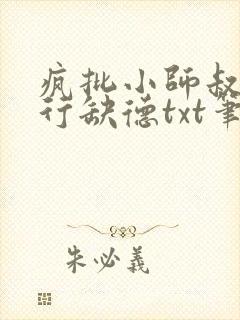 疯批小師叔
行缺德txt筆
朱必義